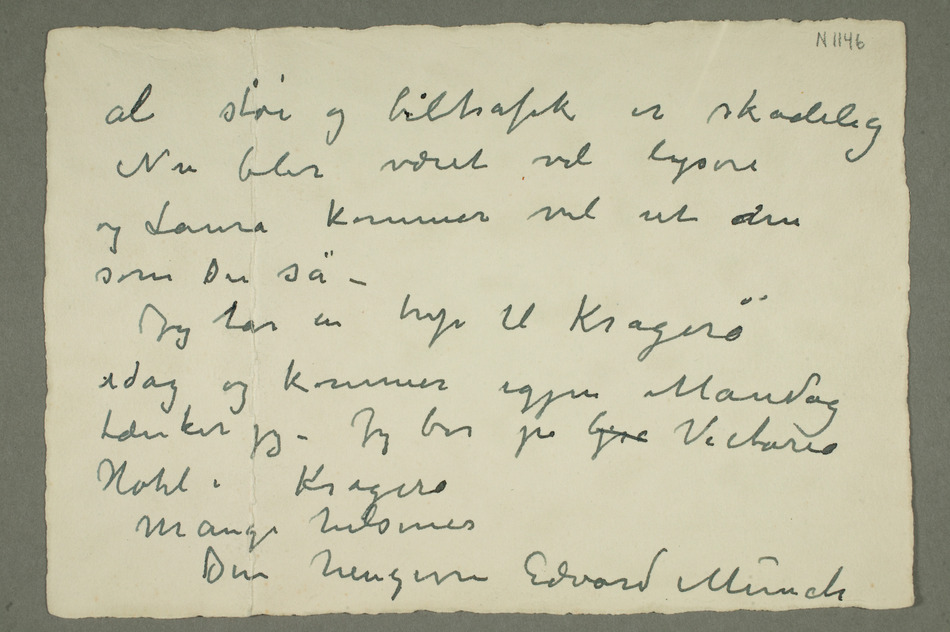 N 1146
al støi og biltrafik er skadelig
Nu blir været vel lysere
og Laura kommer vel ut
som Du sä –
Jeg tar en trip til Kragerö
idag og kommer igjen Mandag
tænker jeg – Jeg bor på Victoria
Hotel i Kragerø
Mange hilsener
Din hengivne Edvard Munch